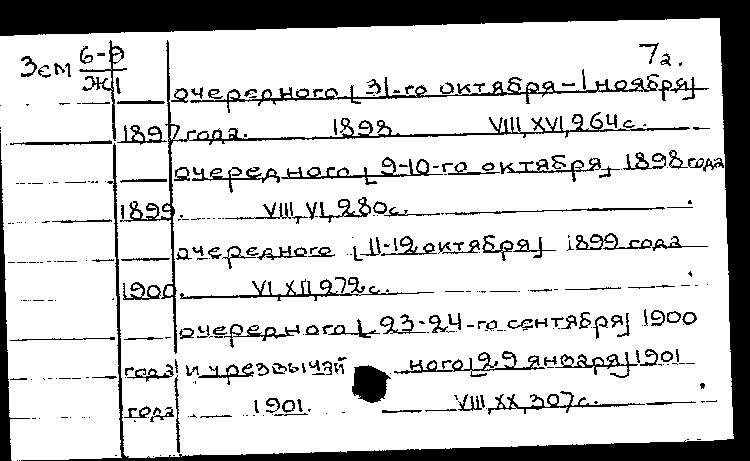 Зем 6-9 7а.
Ж1
очередного [31-го октября-1 ноября]
1897 года. 1898. VIII, XVI, 264 с.
очередного [9-10-го октября] 1898 года
1899. VIII, VI, 280 с.
очередного [11-12 октября] 1899 года
1900. VI, XII, 272 с.
очередного [23-24-го сентября] 1900
года и чрезвычайного [29 января] 1901
года 1901. VIII, XX, 307 с.